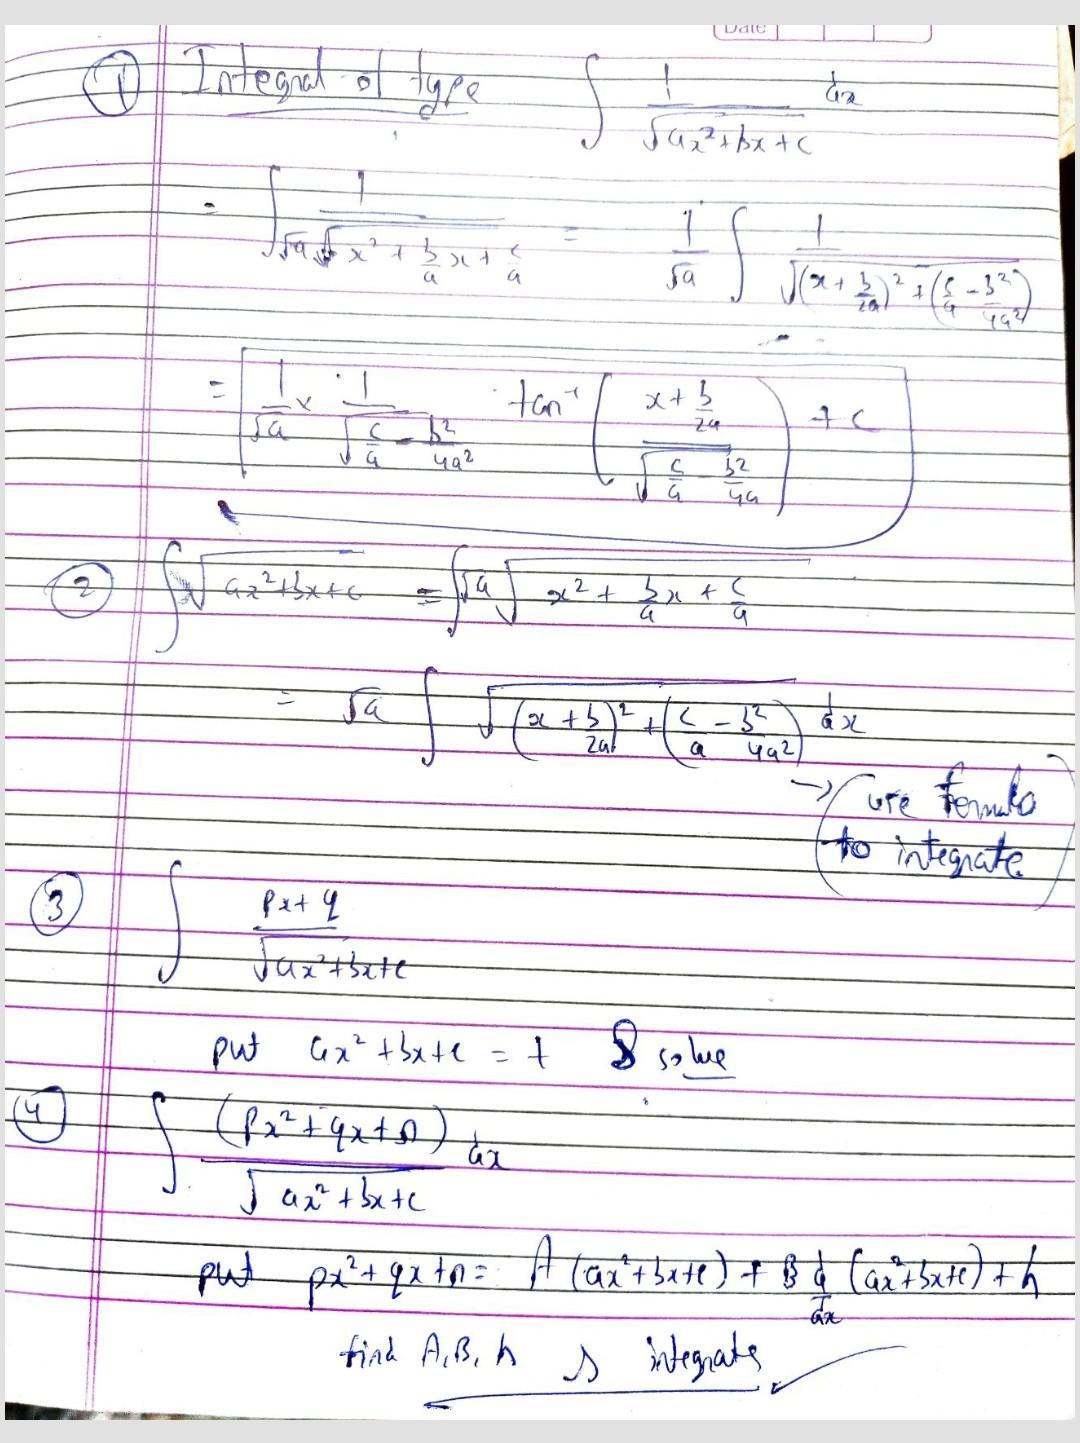 Date
① Integral of type ∫ 1/√(ax²+bx+c) dx
= ∫ 1/(√a √(x² + b/a x + c/a)) = 1/√a ∫ 1/√((x + b/2a)² + (c/a - b²/4a²))
= 1/√a × 1/√(c/a - b²/4a²) tan⁻¹ ((x + b/2a)/√(c/a b²/4a)) + c
② ∫ √(ax²+bx+c) = ∫ √a √(x² + b/a x + c/a)
= √a ∫ √((x + b/2a)² + (c/a - b²/4a²)) dx
→ (use formula
to integrate)
③ ∫ (px+q)/√(ax²+bx+c)
put ax²+bx+c = t & solve
④ ∫ (px²+qx+r) dx / √(ax²+bx+c)
put px²+qx+r = A(ax²+bx+c) + B d/dx (ax²+bx+c) + h
find A, B, h & integrate